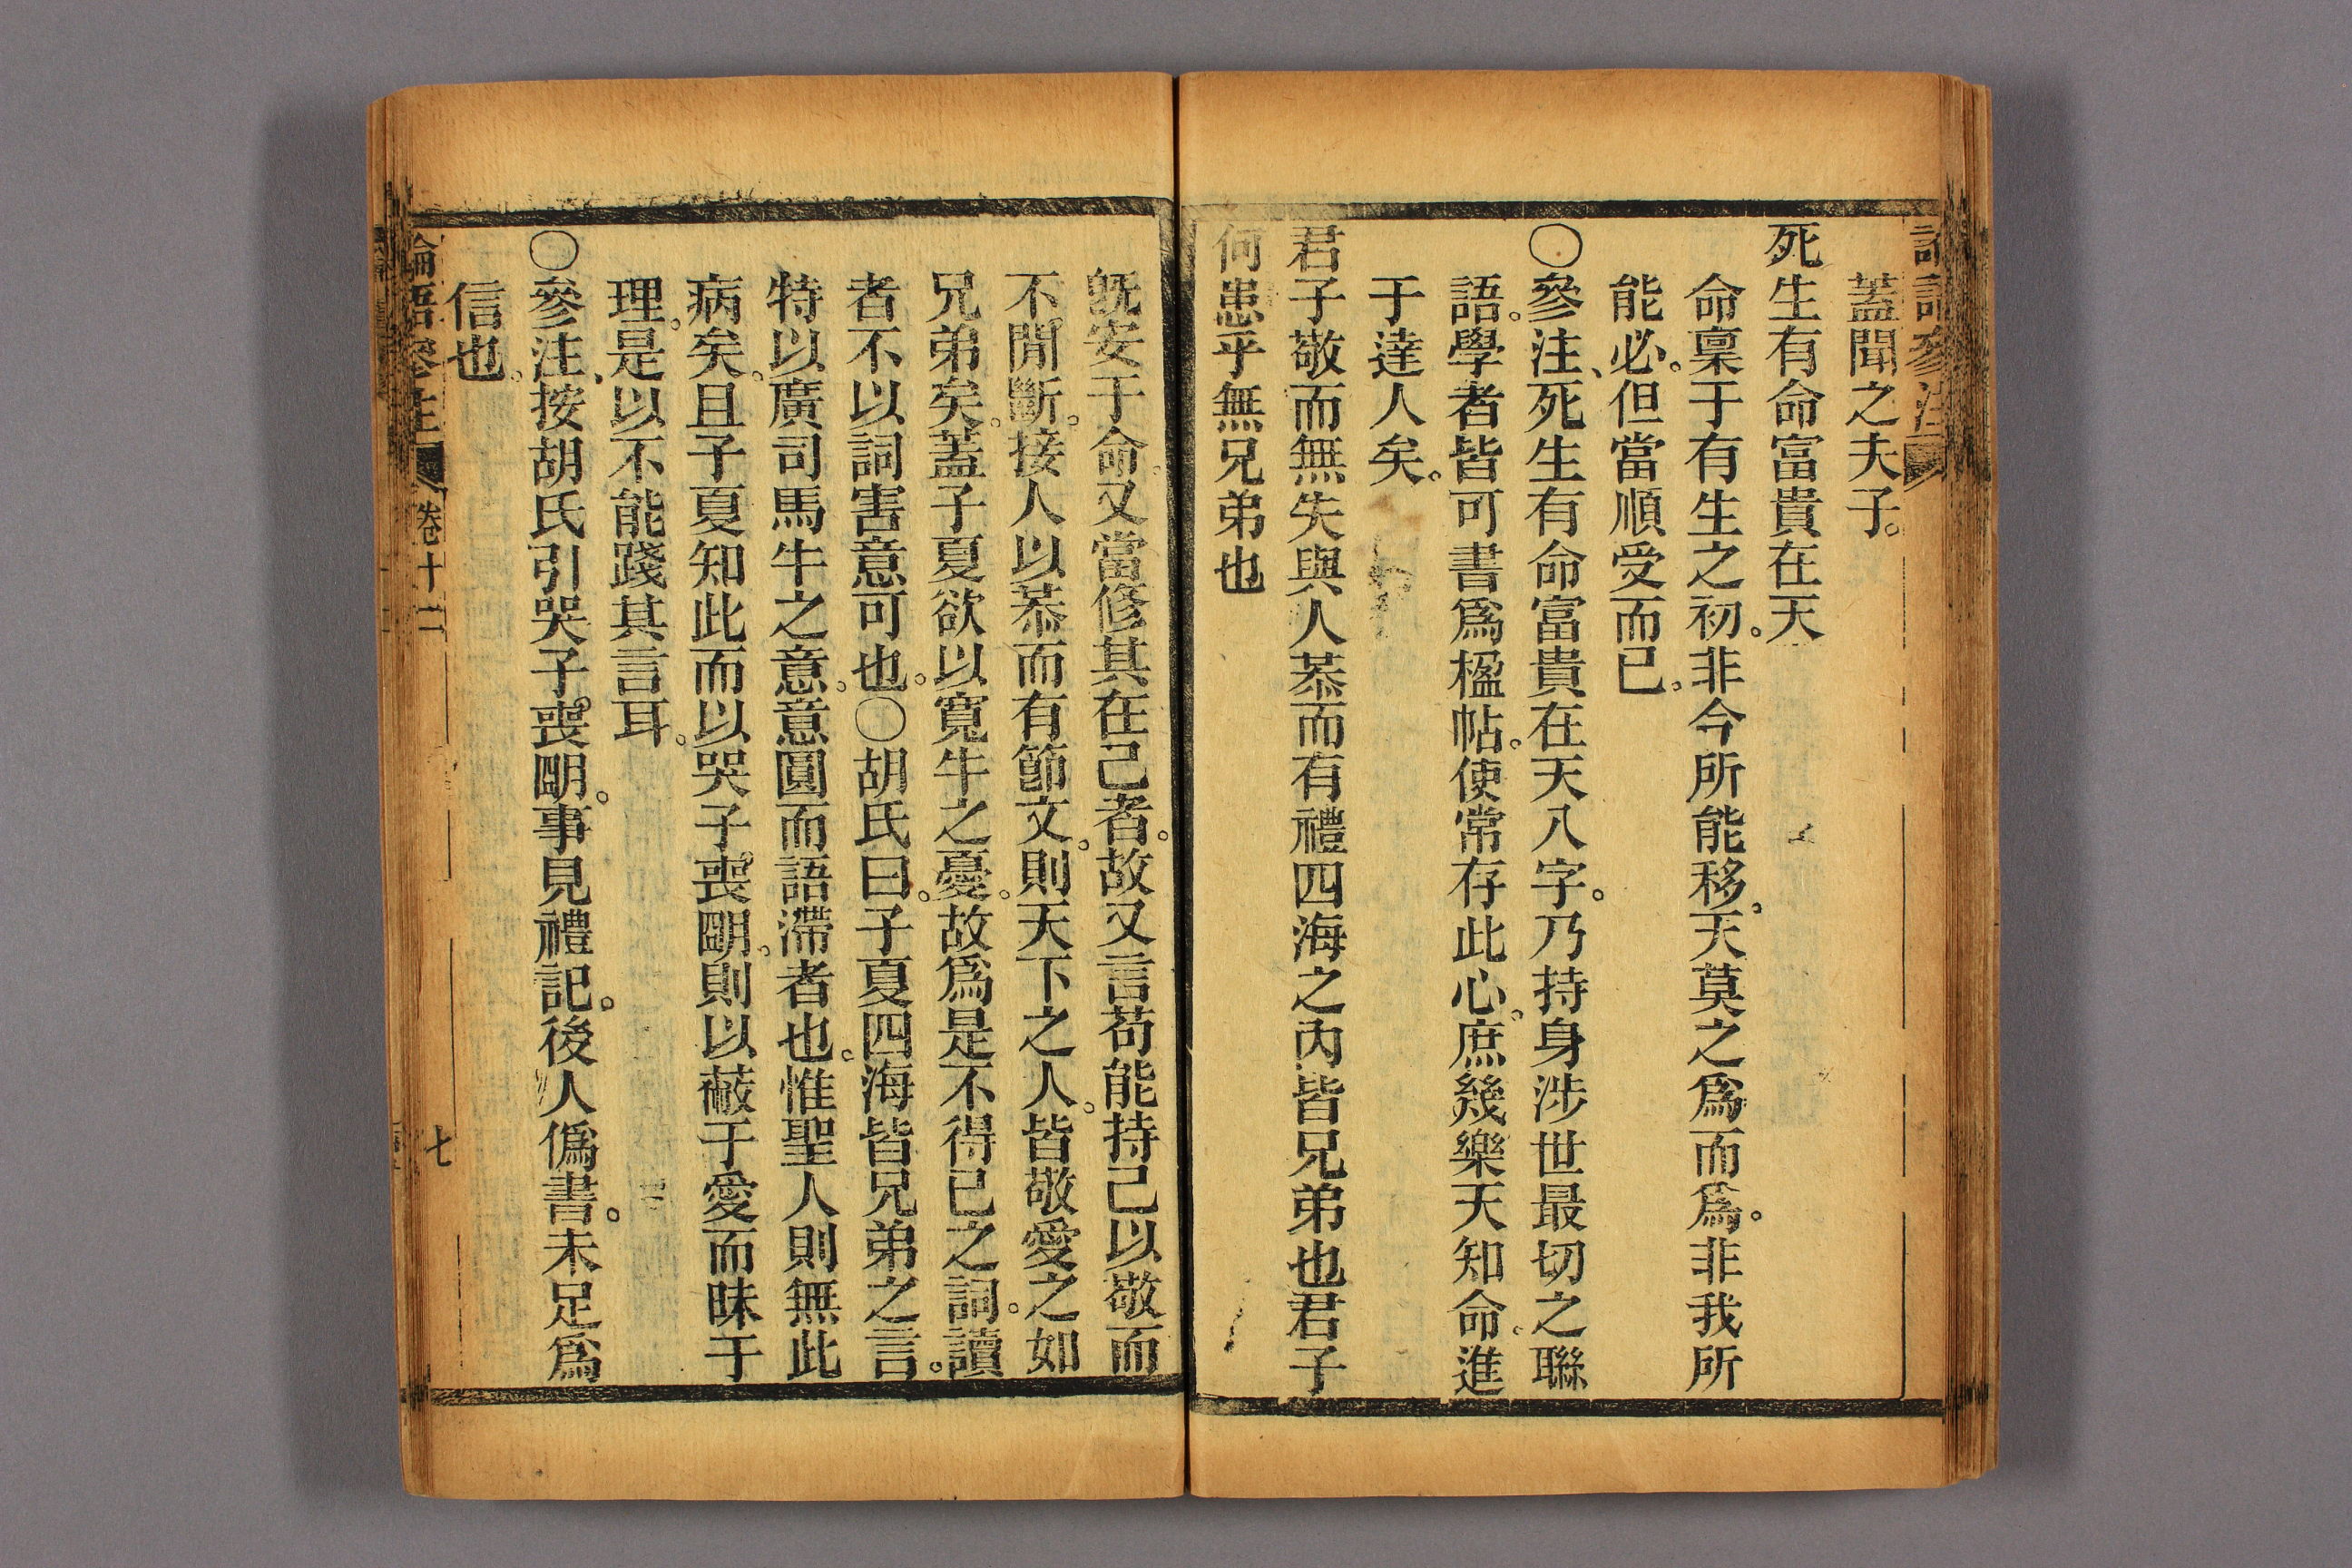 蓋聞之夫子。
死生有命富貴在天
命稟于有生之初。非今所能移。天莫之爲而爲。非我所
能必。但當順受而已。
○參注、死生有命富貴在天八字。乃持身涉世最切之聯
語。學者皆可書爲楹帖。使常存此心。庶幾樂天知命。進
于達人矣。
君子敬而無失與人恭而有禮四海之內皆兄弟也君子
何患乎無兄弟也
旣安于命。又當修其在己者。故又言苟能持己以敬而
不閒斷。接人以恭而有節文。則天下之人。皆敬愛之如
兄弟矣。蓋子夏欲以寬牛之憂。故爲是不得已之詞。讀
者不以詞害意可也。○胡氏曰。子夏四海皆兄弟之言。
特以廣司馬牛之意。意圓而語滯者也。惟聖人則無此
病矣。且子夏知此而以哭子。喪明。則以蔽于愛而昧于
理。是以不能踐其言耳。
○參注、按胡氏引哭子。喪明。事見禮記。後人僞書。未足爲
信也。
論語參注
卷十二
七